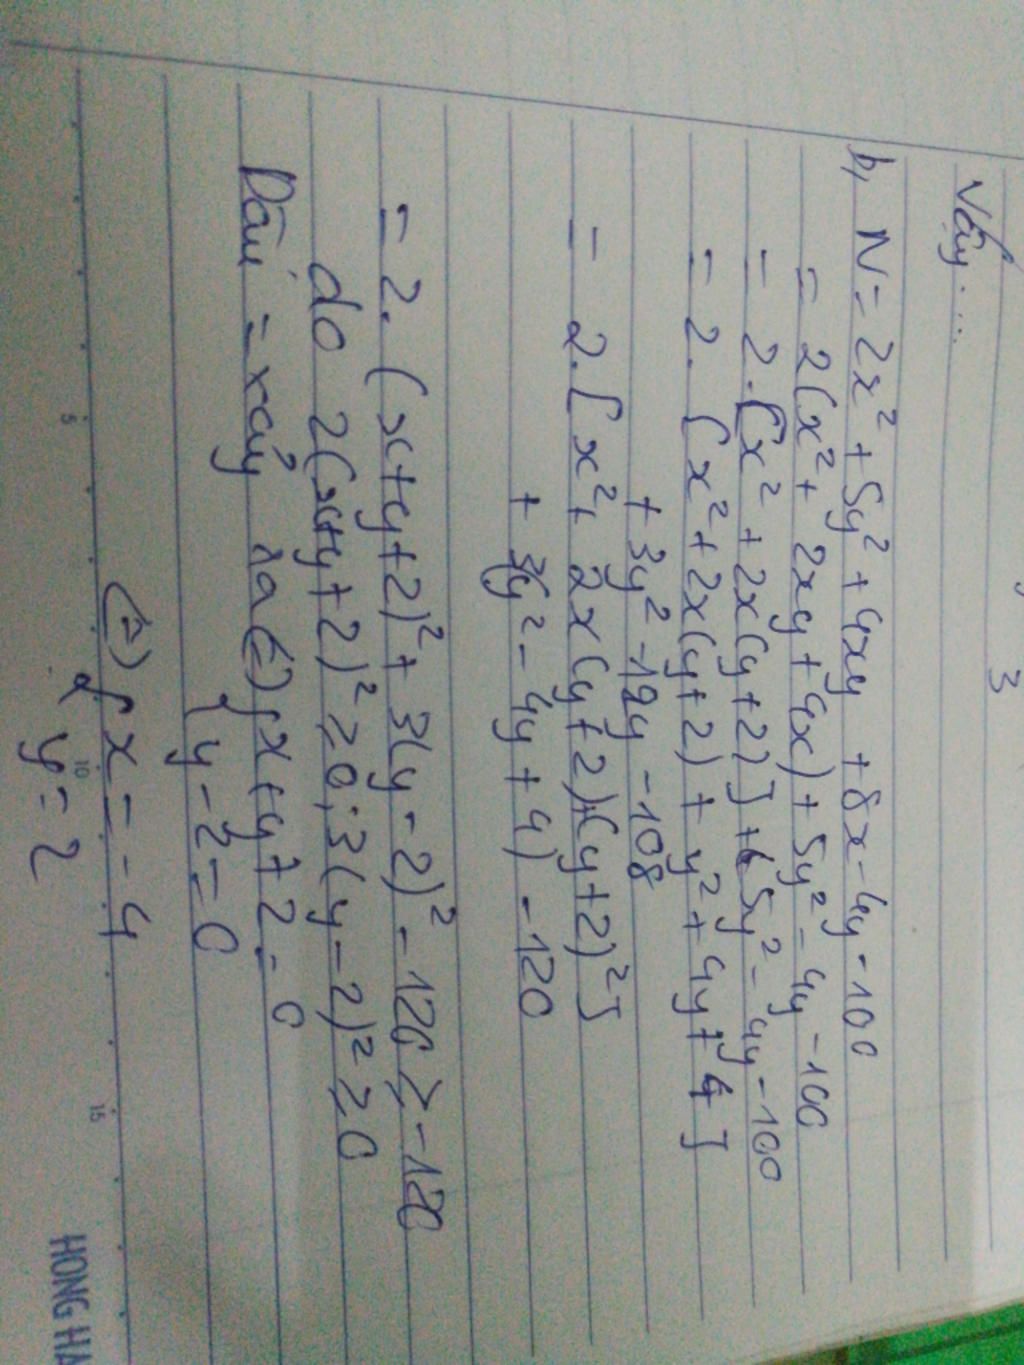 3
Vậy....
b, N = 2x² + 5y² + 4xy + 8x - 4y - 100
= 2(x² + 2xy + 4x) + 5y² - 4y - 100
= 2.[x² + 2x(y+2)] + 5y² - 4y - 100
= 2.[x² + 2x(y+2) + y² + 4y + 4]
+ 3y² - 12y - 108
= 2.[x² + 2x(y+2)+(y+2)²]
+ 3(y² - 4y + 4) - 120
= 2.(x+y+2)² + 3(y-2)² - 120 ≥ -120
do 2(x+y+2)² ≥ 0; 3(y-2)² ≥ 0
Dấu = xảy ra (=) { x+y+2 = 0
{ y-2 = 0
(=) { x = -4
y = 2
5 10 15
HONG HA